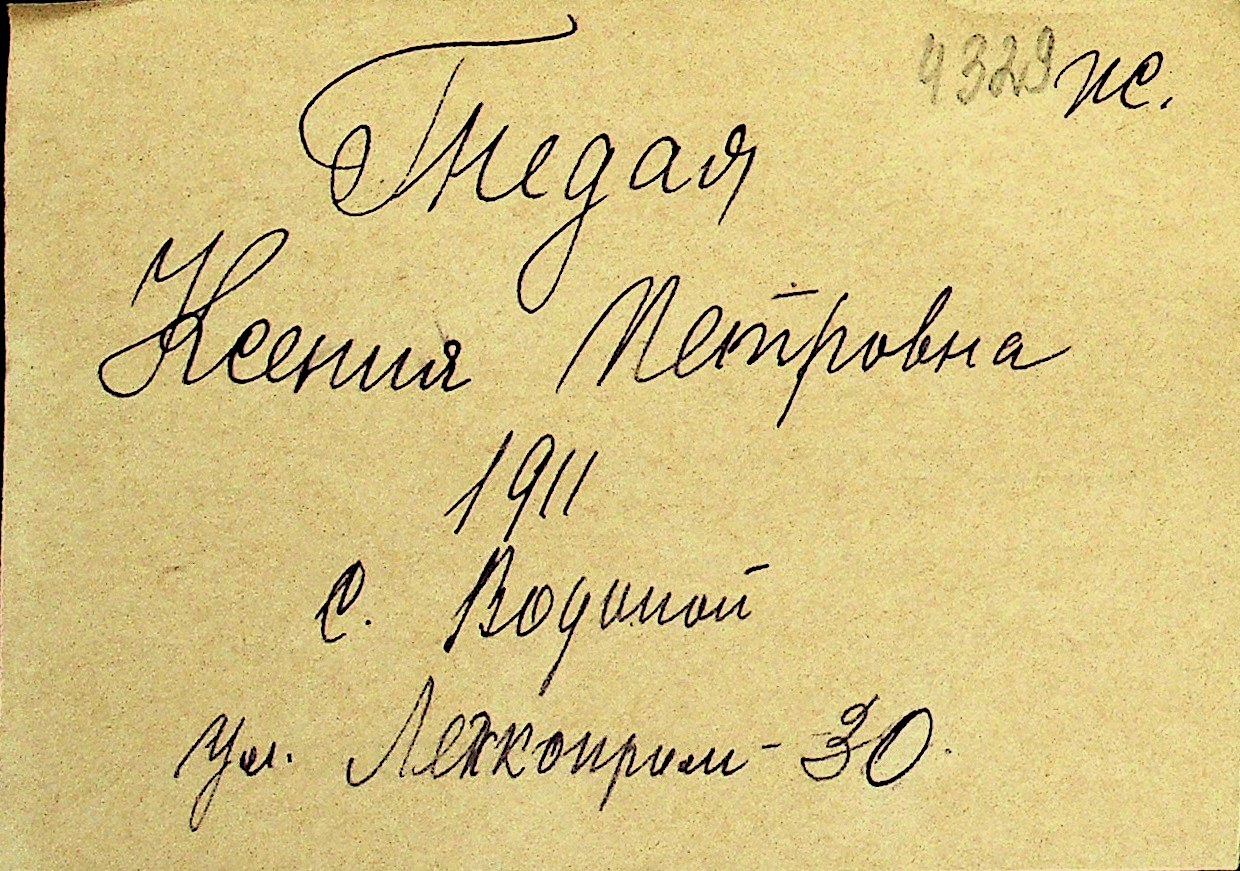 4329 пс.
Гнедая
Ксения Петровна
1911
с. Водопой
ул. Легкопром - 30